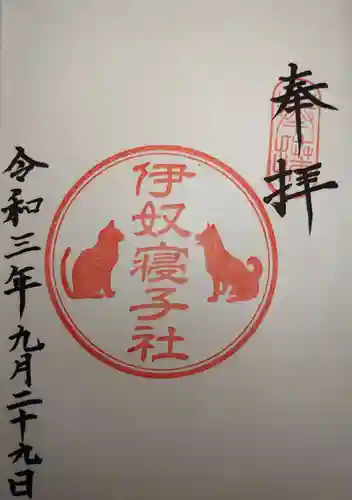 奉拝
伊奴寝子社
令和三年九月二十九日